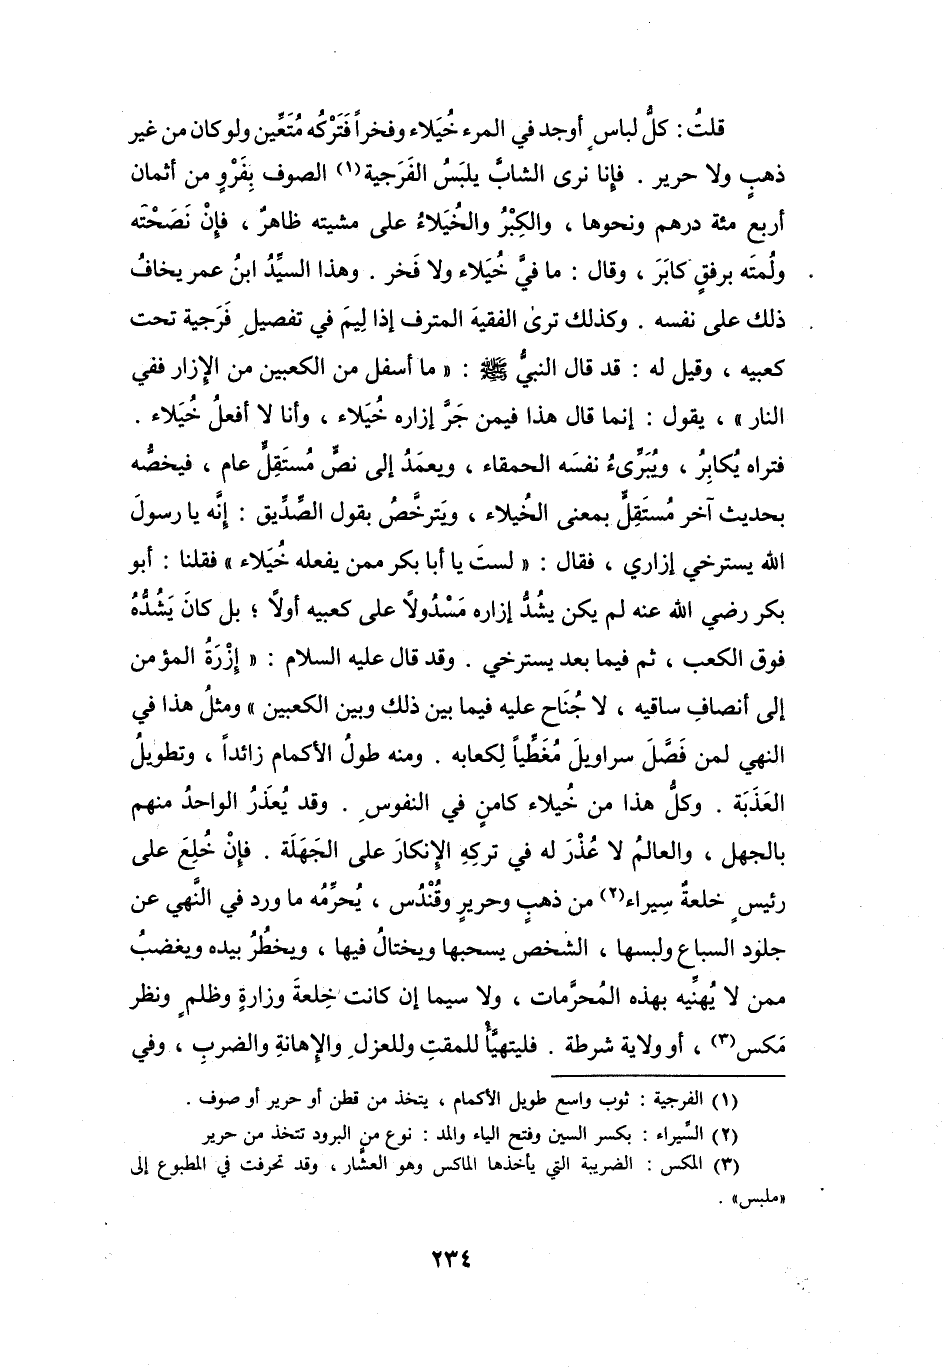 قلتُ: كلُّ لباسٍ أوجد في المرء خُيَلاء وفخراً فَتَرْكُه مُتَعِّين ولو كان من غير
ذهبٍ ولا حرير . فإنا نرى الشابَّ يلبَسُ الفَرَجية(١) الصوف بِفَرْوٍ من أثمان
أربع مئة درهم ونحوها ، والكِبْرُ والخُيَلاءُ على مشيته ظاهرٌ ، فإنْ نَصَحْتَه
ولُمتَه برفقٍ كابَرَ ، وقال : ما فيَّ خُيَلاء ولا فَخر . وهذا السيِّدُ ابنُ عمر يخافُ
ذلك على نفسه . وكذلك ترىٰ الفقيهَ المترف إذا لِيمَ في تفصيلِ فَرَجية تحت
كعبيه ، وقيل له : قد قال النبيُّ ﷺ : « ما أسفل من الكعبين من الإِزار ففي
النار » ، يقول : إنما قال هذا فيمن جَرَّ إزاره خُيَلاء ، وأنا لا أفعلُ خُيَلاء .
فتراه يُكابِرُ ، ويُبَرِّىءُ نفسَه الحمقاء ، ويعمَدُ إلى نصٍّ مُستَقِلٍّ عام ، فيخصُّه
بحديث آخر مُستَقِلٍّ بمعنى الخُيلاء ، ويَترخَّصُ بقول الصِّدِّيق : إنَّه يا رسولَ
الله يسترخي إزاري ، فقال : « لستَ يا أبا بكر ممن يفعله خُيَلاء » فقلنا : أبو
بكر رضي الله عنه لم يكن يشُدُّ إزاره مَسْدُولاً على كعبيه أولاً ؛ بل كانَ يَشُدُّهُ
فوق الكعب ، ثم فيما بعد يسترخي . وقد قال عليه السلام : « إزْرَةُ المؤمن
إلى أنصافِ ساقيه ، لا جُنَاح عليه فيما بين ذلك وبين الكعبين » ومثلُ هذا في
النهي لمن فَصَّلَ سراويلَ مُغَطِّياً لِكعابه . ومنه طولُ الأكمام زائداً ، وتطويلُ
العَذَبَة . وكلُّ هذا من خُيلاء كامنٍ في النفوسِ . وقد يُعذَرُ الواحدُ منهم
بالجهل ، والعالمُ لا عُذْرَ له في تركِهِ الإِنكارَ على الجَهَلَة . فإنْ خُلِعَ على
رئيسٍ خلعةٌ سِيراء(٢) من ذهبٍ وحريرٍ وقُنْدُس ، يُحرِّمُه ما ورد في النَّهي عن
جلود السباع ولبسها ، الشخص يسحبها ويختالُ فيها ، ويخطُرُ بيده ويغضبُ
ممن لا يُهنِّيه بهذه المُحرَّمات ، ولا سيما إن كانت خِلعةَ وزارةٍ وظلمٍ ونظر
مَكس(٣) ، أو ولاية شرطة . فليتهيَّأْ للمقتِ وللعزلِ والإِهانةِ والضربِ ، وفي
(١) الفرجية : ثوب واسع طويل الأكمام ، يتخذ من قطن أو حرير أو صوف .
(٢) السِّيراء : بكسر السين وفتح الياء والمد : نوع من البرود تتخذ من حرير
(٣) المكس : الضريبة التي يأخذها الماكس وهو العشَّار ، وقد تحرفت في المطبوع إلى
«ملبس» .
٢٣٤